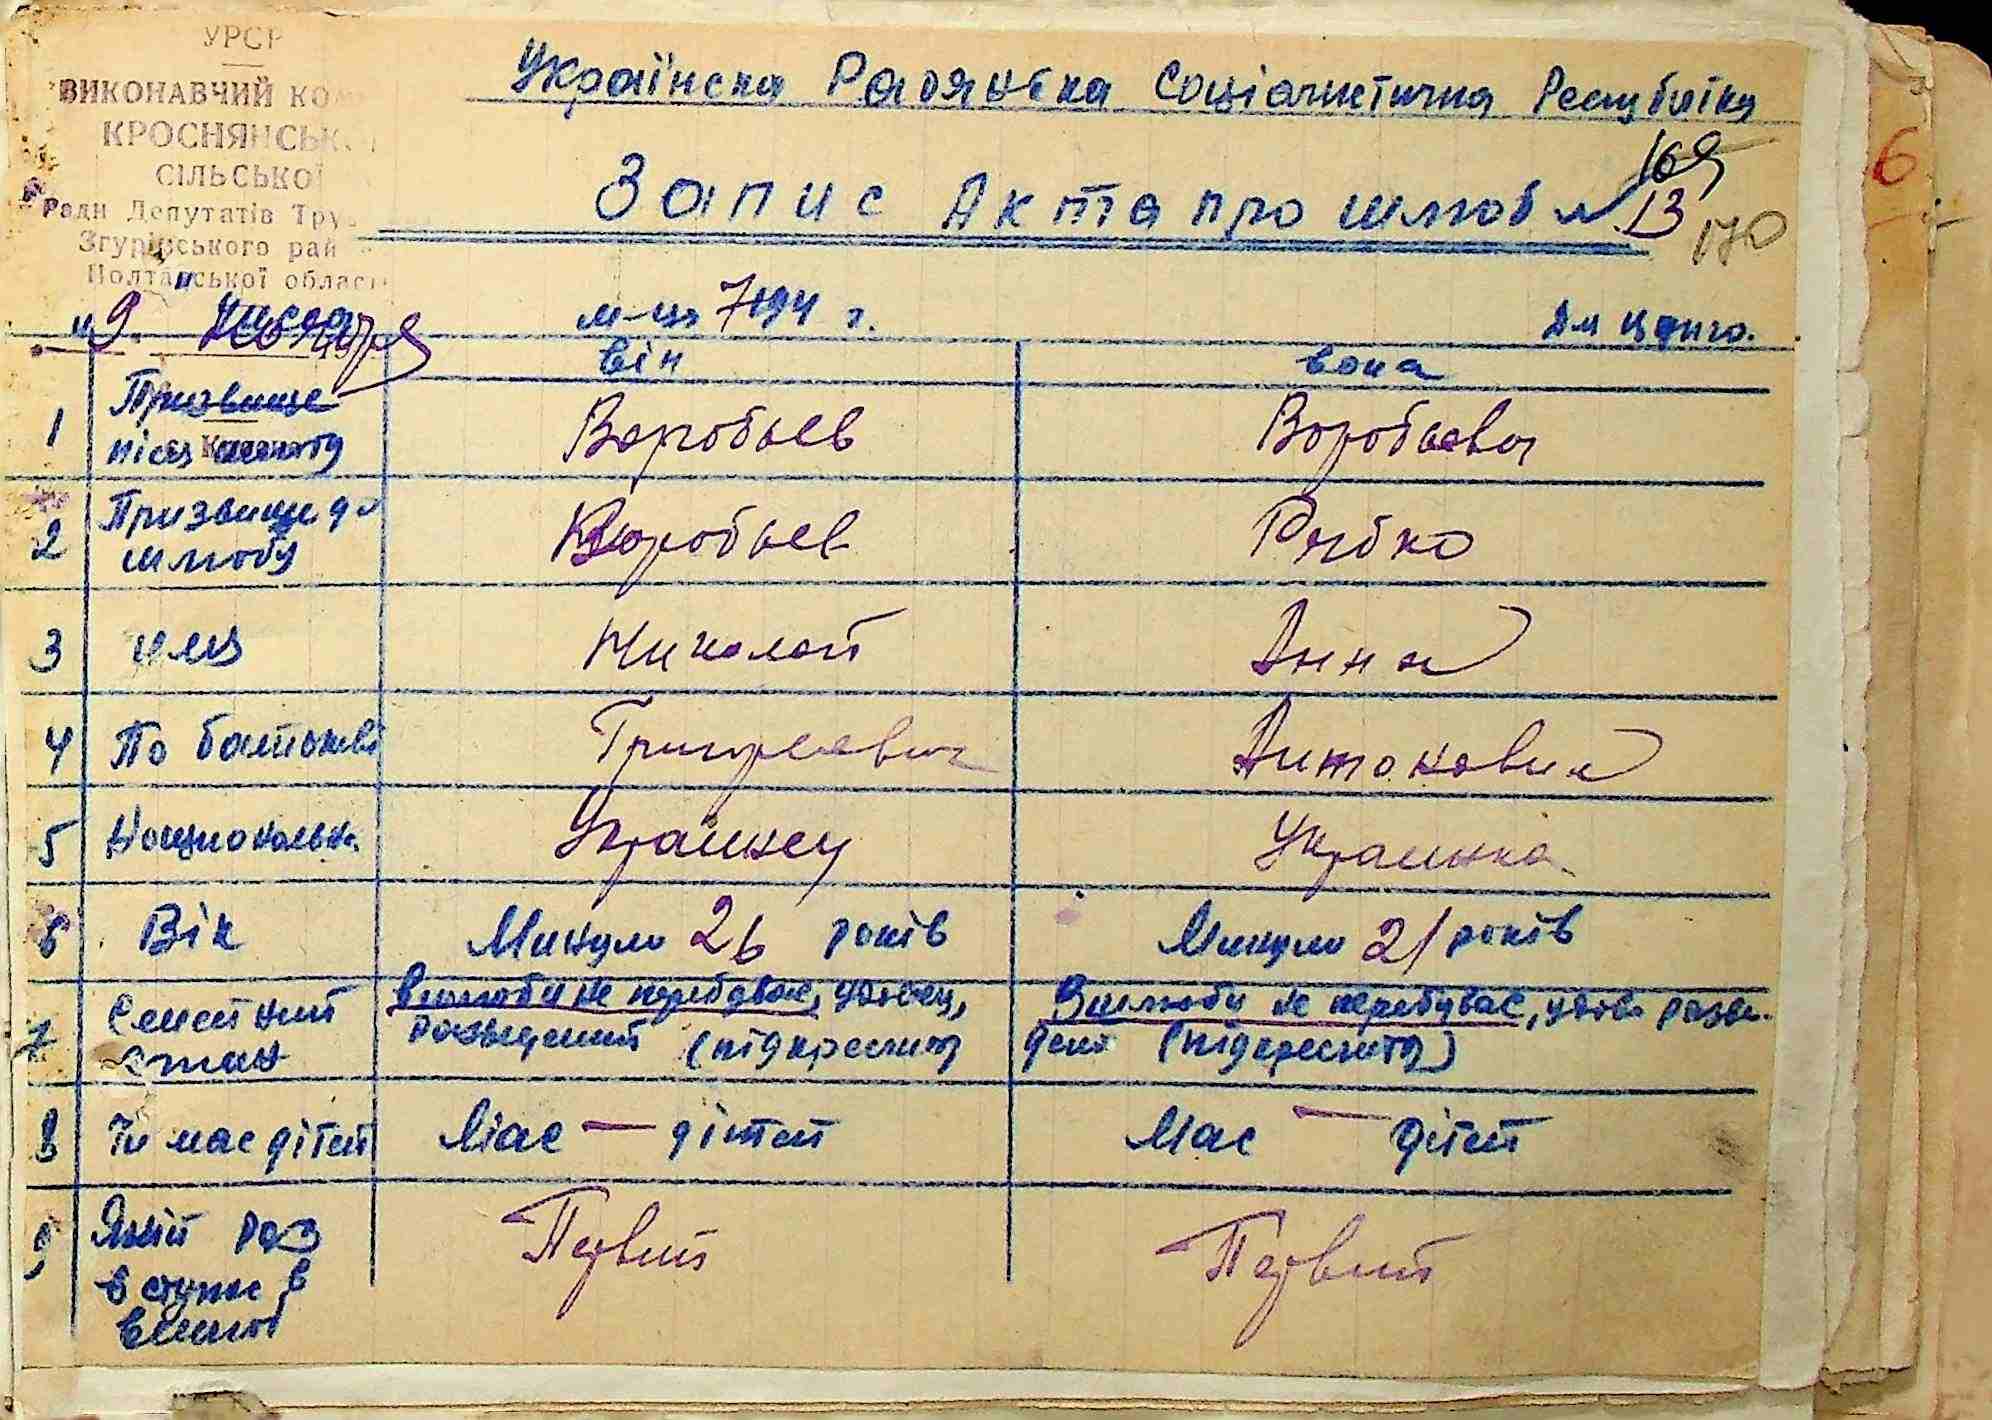 УРСР
ВИКОНАВЧИЙ КОМ
КРОСНЯНСЬКО
СІЛЬСЬКОЇ
Ради Депутатів Тру
Згурівського рай
Полтавської облас
Українска Радянська Соціалистична Республика
169
6
Запис Акта про шлюб № 13
170
"9" м-ць 7 194 г.
він вона
1 Призвище після Воробьев Воробьева
2 Призвище до шлюбу Воробьев Рябко
3 имя Николай Анна
4 По батькові Григорьевич Антоновна
5 Национальн. Украинец Украинка
6 Вік Минуло 26 років Минуло 21 років
7 Семейний стан В шлюбі не перебуває, удовец, разведений (підкреслить В шлюбу не перебуває, удова разведена (підкреслить)
8 Чи має дітей Має — дітей Має — дітей
9 Який раз вступає в шлюб Первий Первий